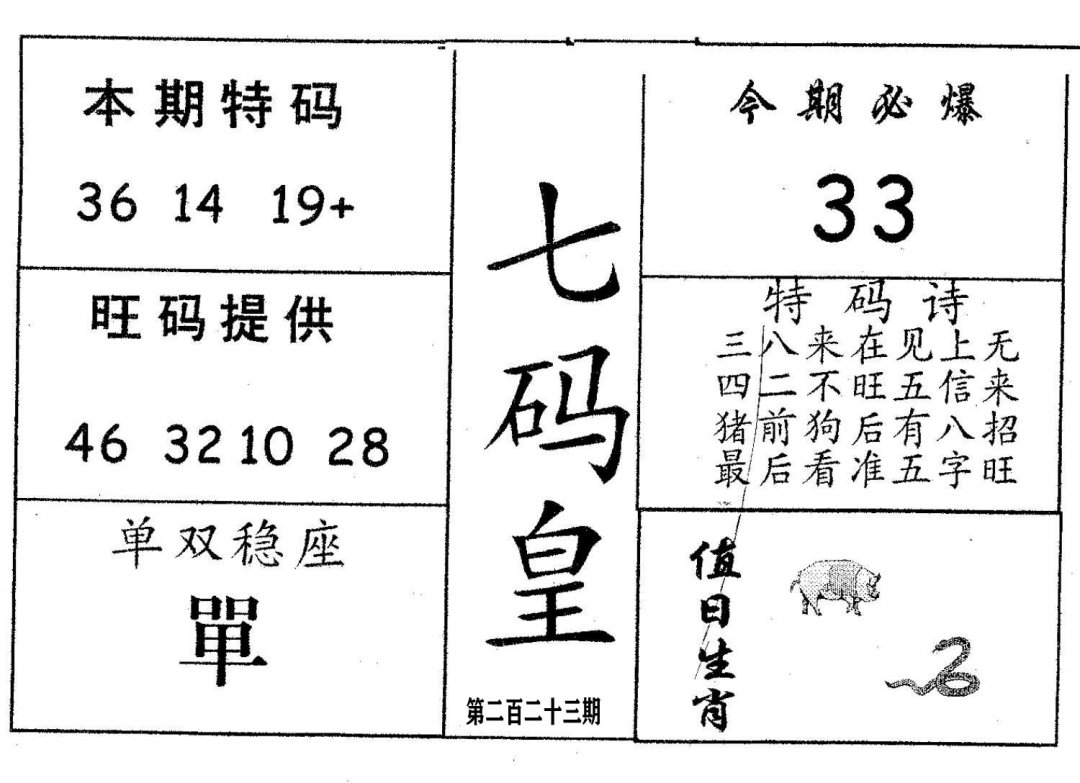 本期特码
36 14 19+
旺码提供
46 32 10 28
单双稳座
單
七码皇
第二百二十三期
今期必爆
33
特码诗
三八来在见上无
四二不旺五信来
猪前狗后有八招
最后看准五字旺
值日生肖